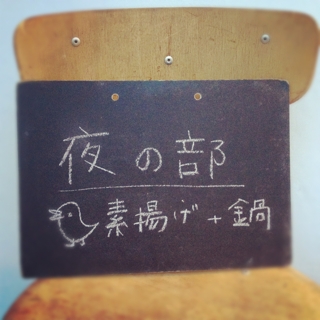 夜の部
素揚げ+鍋